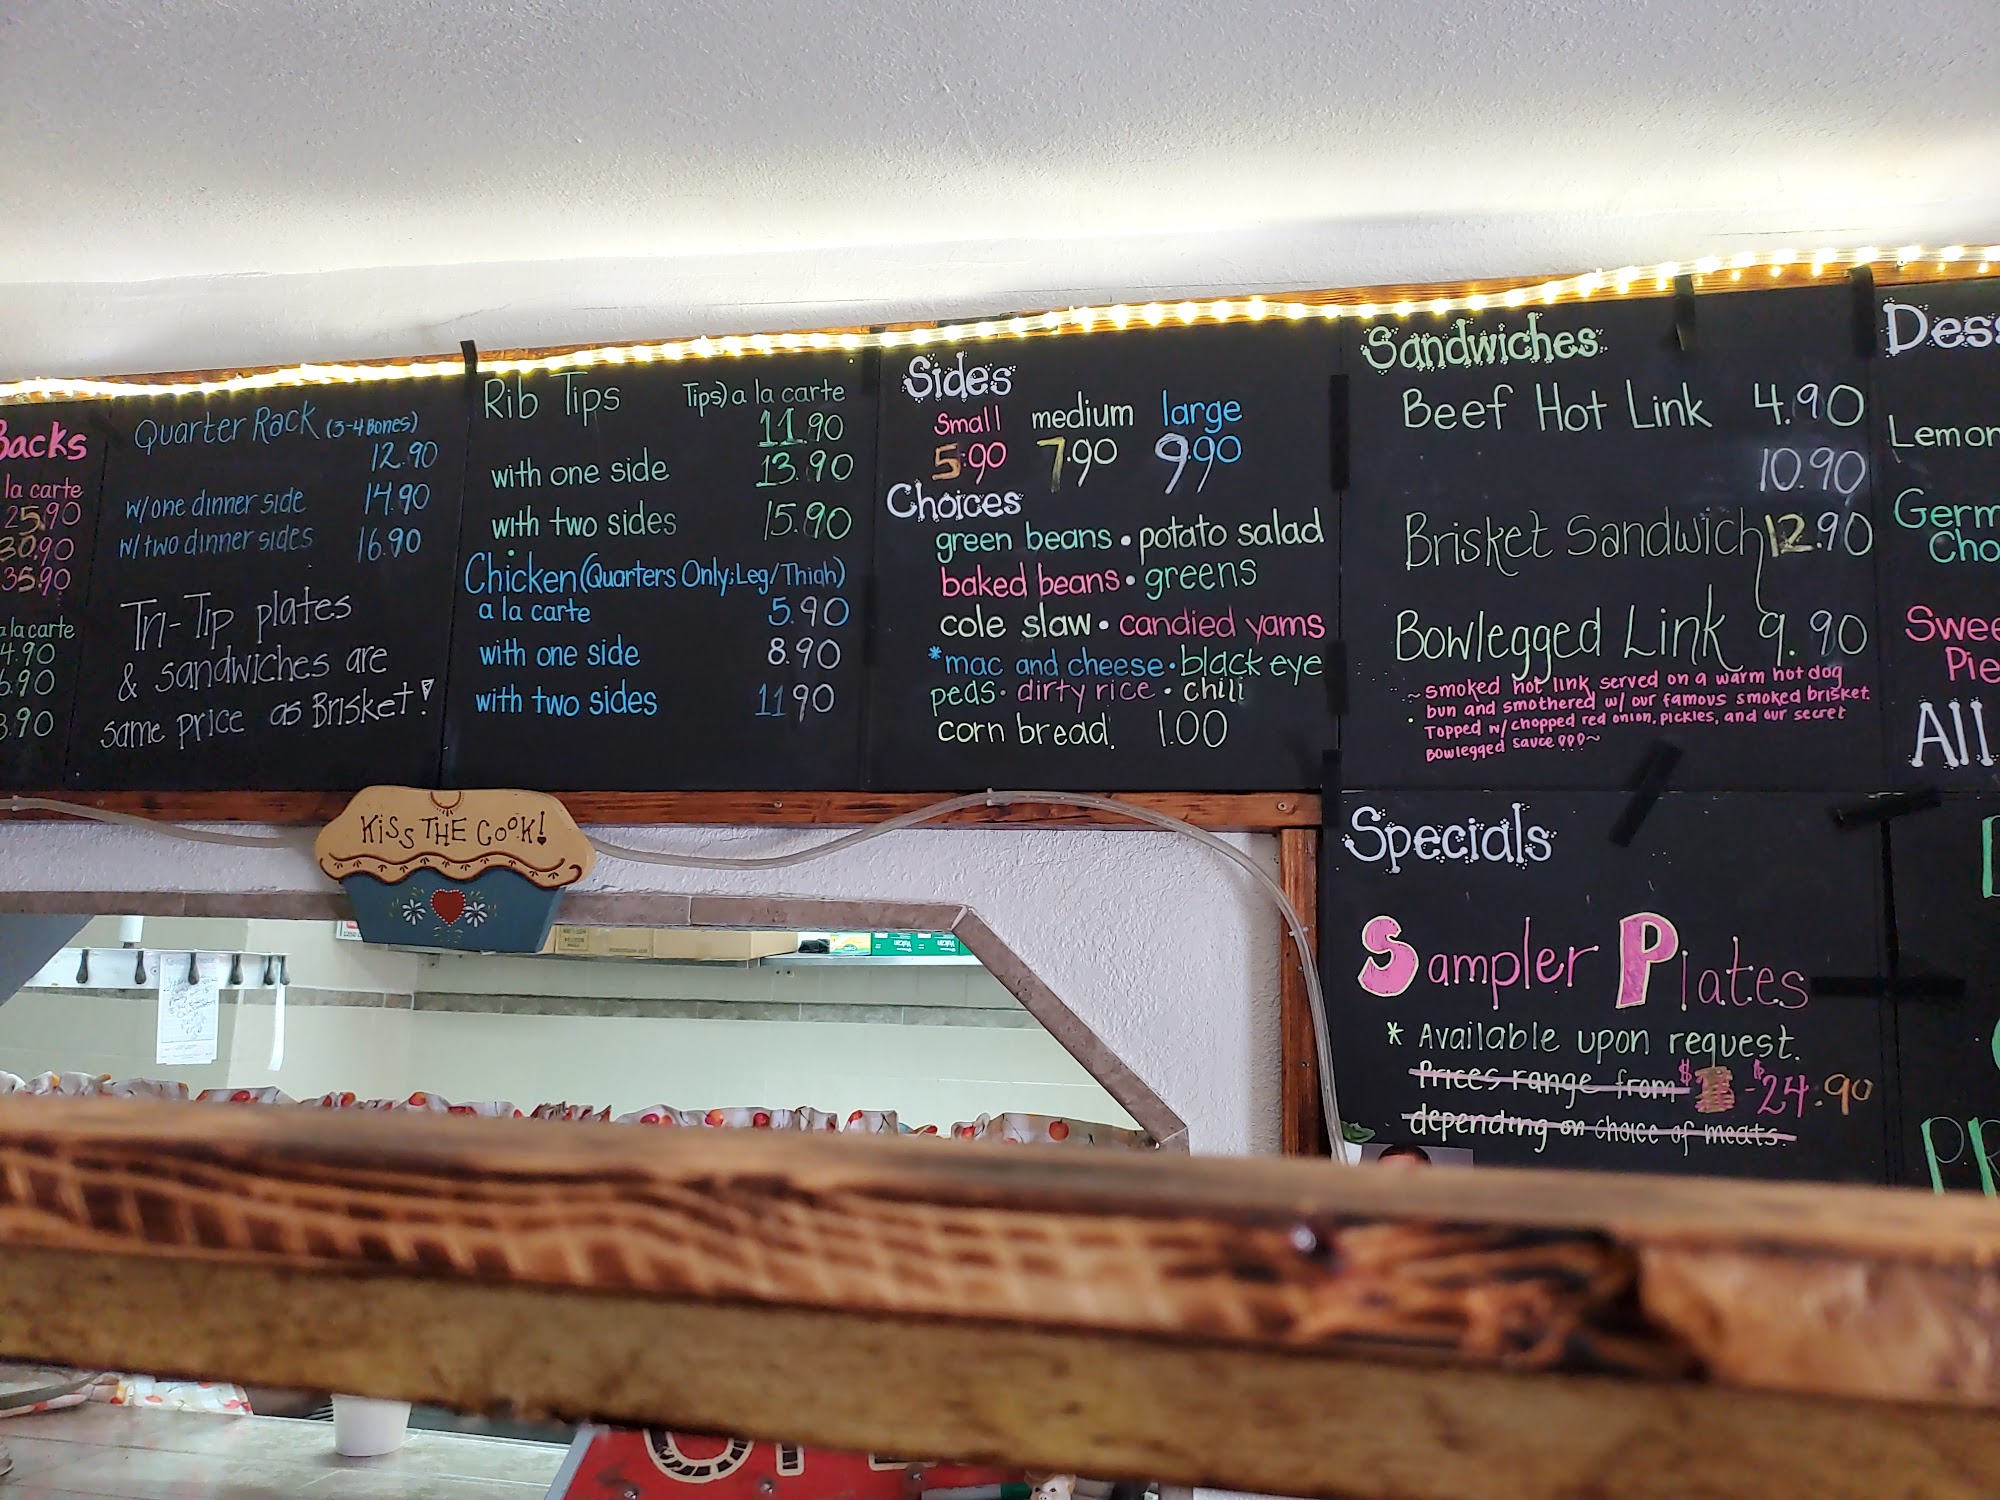 Backs
la carte
25.90
30.90
35.90
a la carte
4.90
6.90
3.90
Quarter Rack (3-4 Bones)
12.90
w/one dinner side 14.90
w/two dinner sides 16.90
Tri-Tip plates
& sandwiches are
same price as Brisket!
Rib Tips Tips) a la carte
11.90
with one side 13.90
with two sides 15.90
Chicken (Quarters Only; Leg/Thigh)
a la carte 5.90
with one side 8.90
with two sides 11 90
Sides
Small medium large
5.90 7.90 9.90
Choices
green beans • potato salad
baked beans • greens
cole slaw • candied yams
*mac and cheese • black eye
peas • dirty rice • chili
corn bread 1.00
Sandwiches
Beef Hot Link 4.90
10.90
Brisket Sandwich 12.90
Bowlegged Link 9.90
~ smoked hot link served on a warm hot dog
bun and smothered w/ our famous smoked brisket.
Topped w/chopped red onion, pickles, and our secret
Bowlegged sauce ~
Specials
Sampler Plates
* Available upon request.
Prices range from $ - $24.90
depending on choice of meats.
Dess
Lemon
Germ
Cho
Swee
Pie
All
PR
KISS THE COOK!
Vulcan
Vulcan